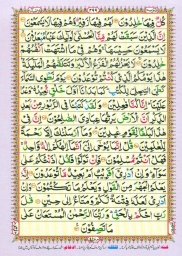 كُلٌّ فِيهَا خٰلِدُونَ لَهُمْ فِيهَا زَفِيرٌ وَّهُمْ فِيهَا لَا يَسْمَعُونَ
اِنَّ الَّذِينَ سَبَقَتْ لَهُمْ مِّنَّا الْحُسْنٰٓى اُولٰٓئِكَ عَنْهَا مُبْعَدُونَ
لَا يَسْمَعُونَ حَسِيسَهَا وَهُمْ فِي مَا اشْتَهَتْ اَنْفُسُهُمْ
خٰلِدُونَ لَا يَحْزُنُهُمُ الْفَزَعُ الْاَكْبَرُ وَتَتَلَقّٰىهُمُ الْمَلٰٓئِكَةُ
هٰذَا يَوْمُكُمُ الَّذِي كُنْتُمْ تُوعَدُونَ يَوْمَ نَطْوِي السَّمَآءَ
كَطَيِّ السِّجِلِّ لِلْكُتُبِ كَمَا بَدَاْنَآ اَوَّلَ خَلْقٍ نُّعِيدُهٗ وَعْدًا
عَلَيْنَا اِنَّا كُنَّا فٰعِلِينَ وَلَقَدْ كَتَبْنَا فِي الزَّبُورِ مِنْۢ بَعْدِ
الذِّكْرِ اَنَّ الْاَرْضَ يَرِثُهَا عِبَادِيَ الصّٰلِحُونَ اِنَّ فِي هٰذَا
لَبَلٰغًا لِّقَوْمٍ عٰبِدِينَ وَمَآ اَرْسَلْنٰكَ اِلَّا رَحْمَةً لِّلْعٰلَمِينَ
قُلْ اِنَّمَا يُوحٰٓى اِلَيَّ اَنَّمَآ اِلٰهُكُمْ اِلٰهٌ وَّاحِدٌ
فَهَلْ اَنْتُمْ مُّسْلِمُونَ فَاِنْ تَوَلَّوْا فَقُلْ اٰذَنْتُكُمْ عَلٰى سَوَآءٍ
وَاِنْ اَدْرِيٓ اَقَرِيبٌ اَمْ بَعِيدٌ مَّا تُوعَدُونَ اِنَّهٗ يَعْلَمُ
الْجَهْرَ مِنَ الْقَوْلِ وَيَعْلَمُ مَا تَكْتُمُونَ
وَاِنْ اَدْرِي لَعَلَّهٗ فِتْنَةٌ لَّكُمْ وَمَتَاعٌ اِلٰى حِينٍ قٰلَ
رَبِّ احْكُمْ بِالْحَقِّ وَرَبُّنَا الرَّحْمٰنُ الْمُسْتَعَانُ عَلٰى
مَا تَصِفُونَ